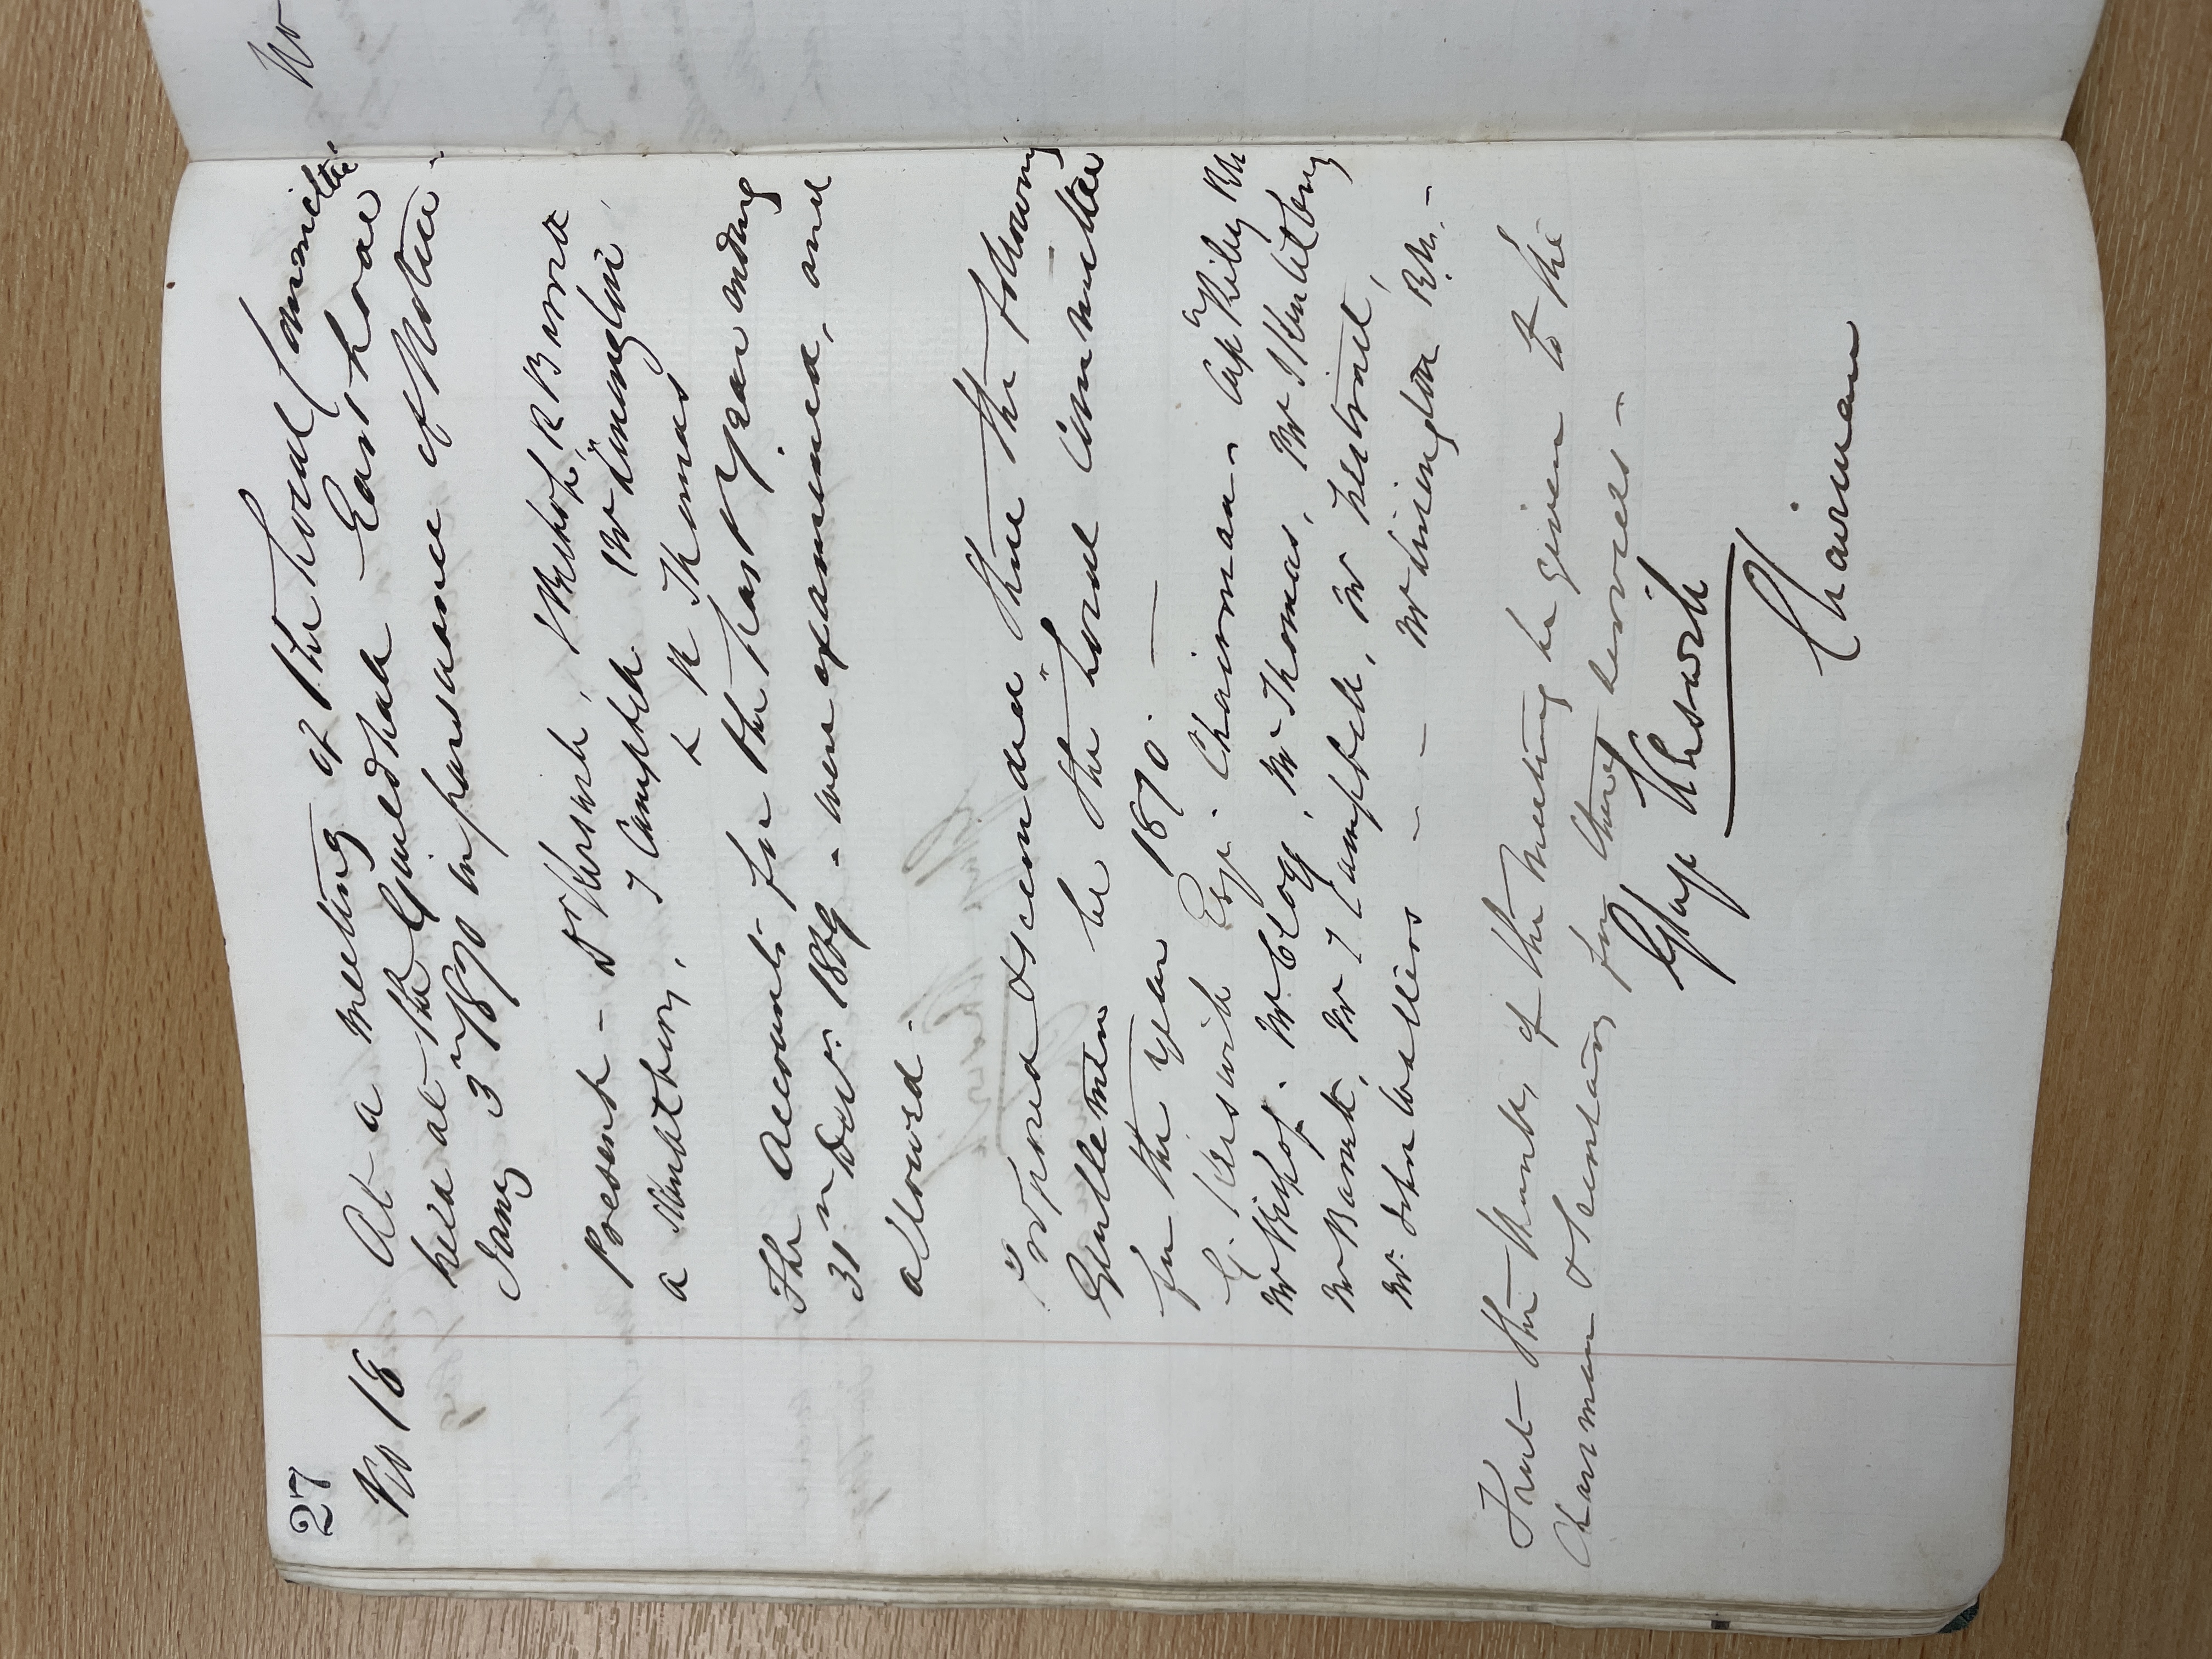 27
No 18
At a meeting of the Local Committee
held at the Guildhall East Looe
Jany 3rd 1870 in pursuance of Notice -
Present - Dr Keswick, J Bishop, R Bond
a T Campbell Mr Linington
L R Thomas
The Accounts for the past year ending
31st Decr. 1869 - were examined, and
allowed -
Proposed & seconded that the following
Gentlemen be the "Local Committee"
for the Year 1870. —
G. Keswick Esqr. Chairman - Capt RN
Mr Bishop. Mr Clogg, Mr Thomas, Mr
Mr Band, Mr T Campbell, Mr
Mr. John - - - Mr Linington R.N. -
That the thanks of the meeting be given to the
Chairman & Secretary for their services -
Keswick
Chairman
No